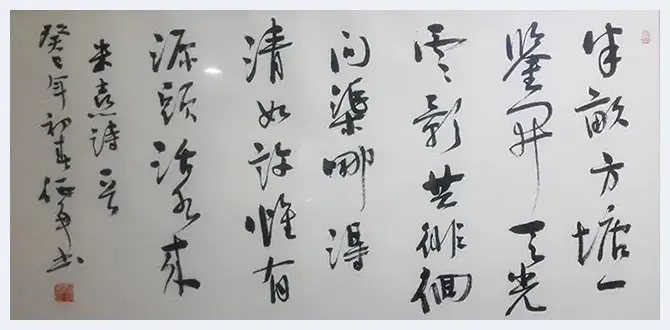 半畝方塘一
鑒開天光
雲影共徘徊
问渠哪得
清如許惟有
源頭活水来
朱熹詩一首
癸巳年初春征军书